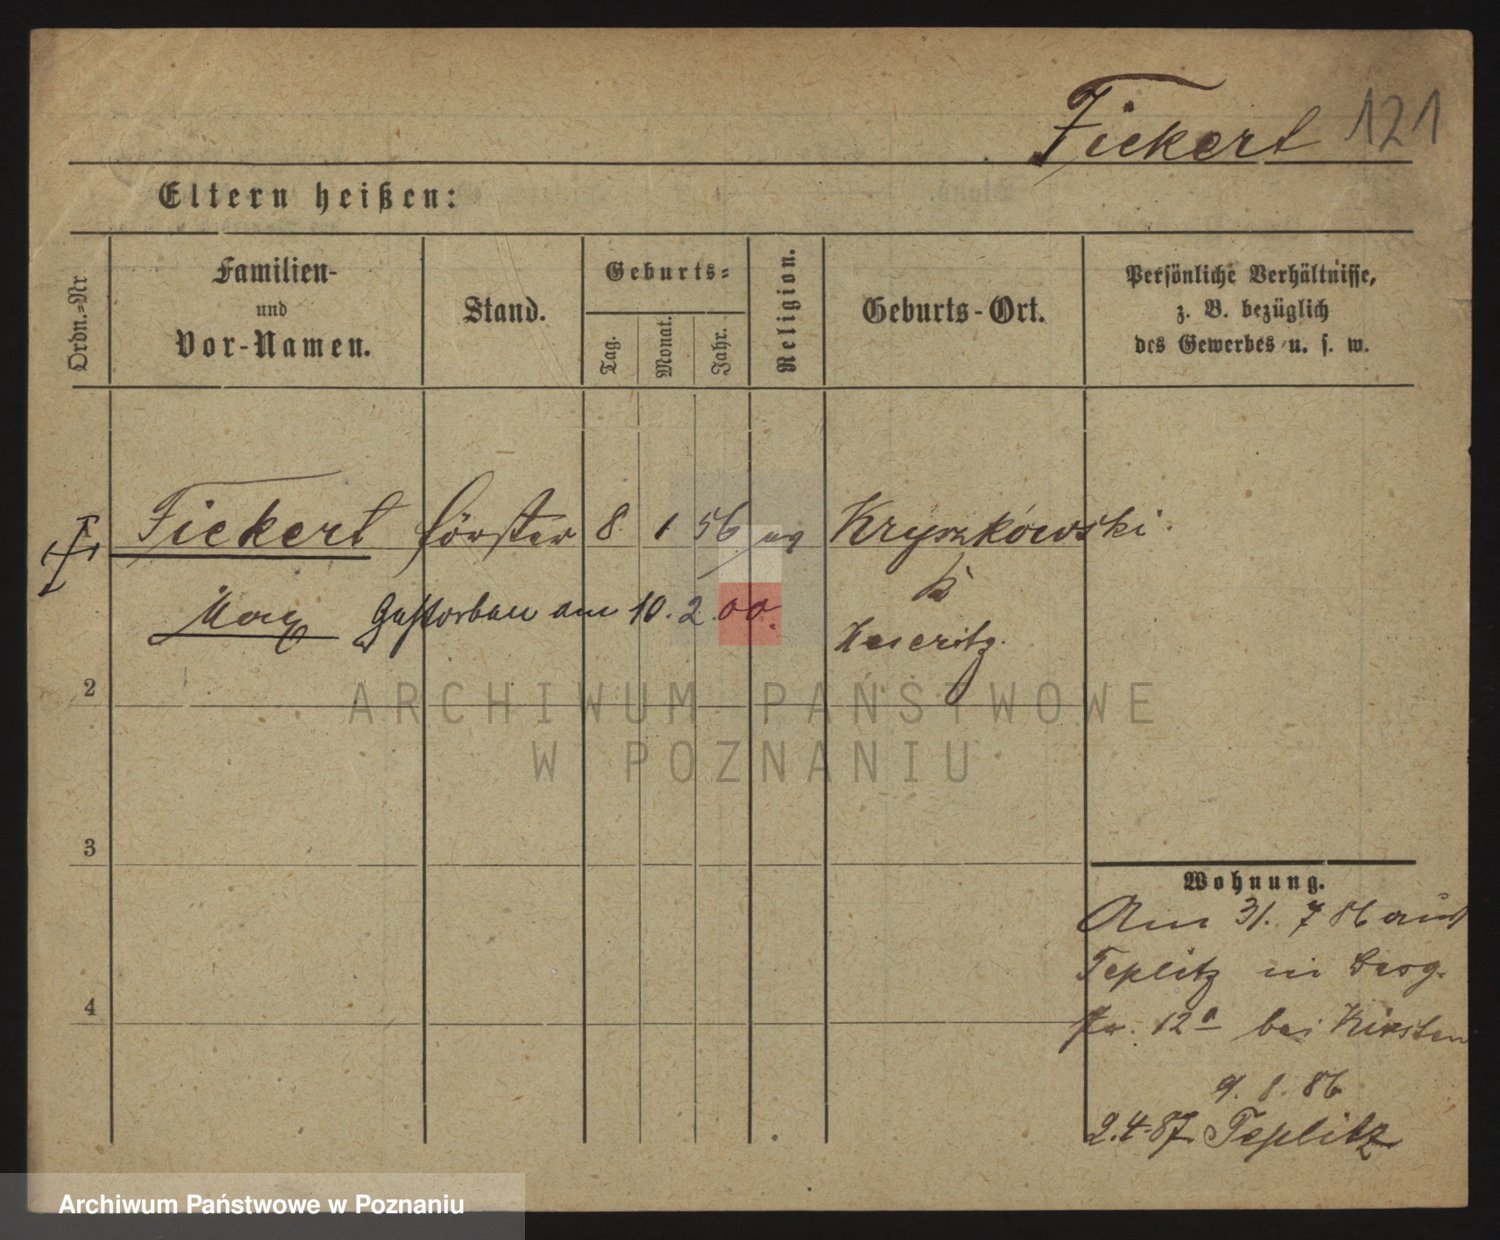 Fickert 121
Eltern heißen:
Ordn.-Nr
Familien-
und
Vor-Namen.
Stand.
Geburts-
Tag.
Monat.
Jahr.
Religion.
Geburts-Ort.
Persönliche Verhältnisse,
z. B. bezüglich
des Gewerbes u. s. w.
Fickert Förster 8 1 56 Kryszkowski
Max Gestorben am 10.2.00.
Meseritz.
2
3
4
Wohnung.
Am 31. 7 86 aus
Teplitz in Berg-
str. 12a bei Kirsten
9. 8. 86
2.4.87 Teplitz
ARCHIWUM PAŃSTWOWE
W POZNANIU
Archiwum Państwowe w Poznaniu